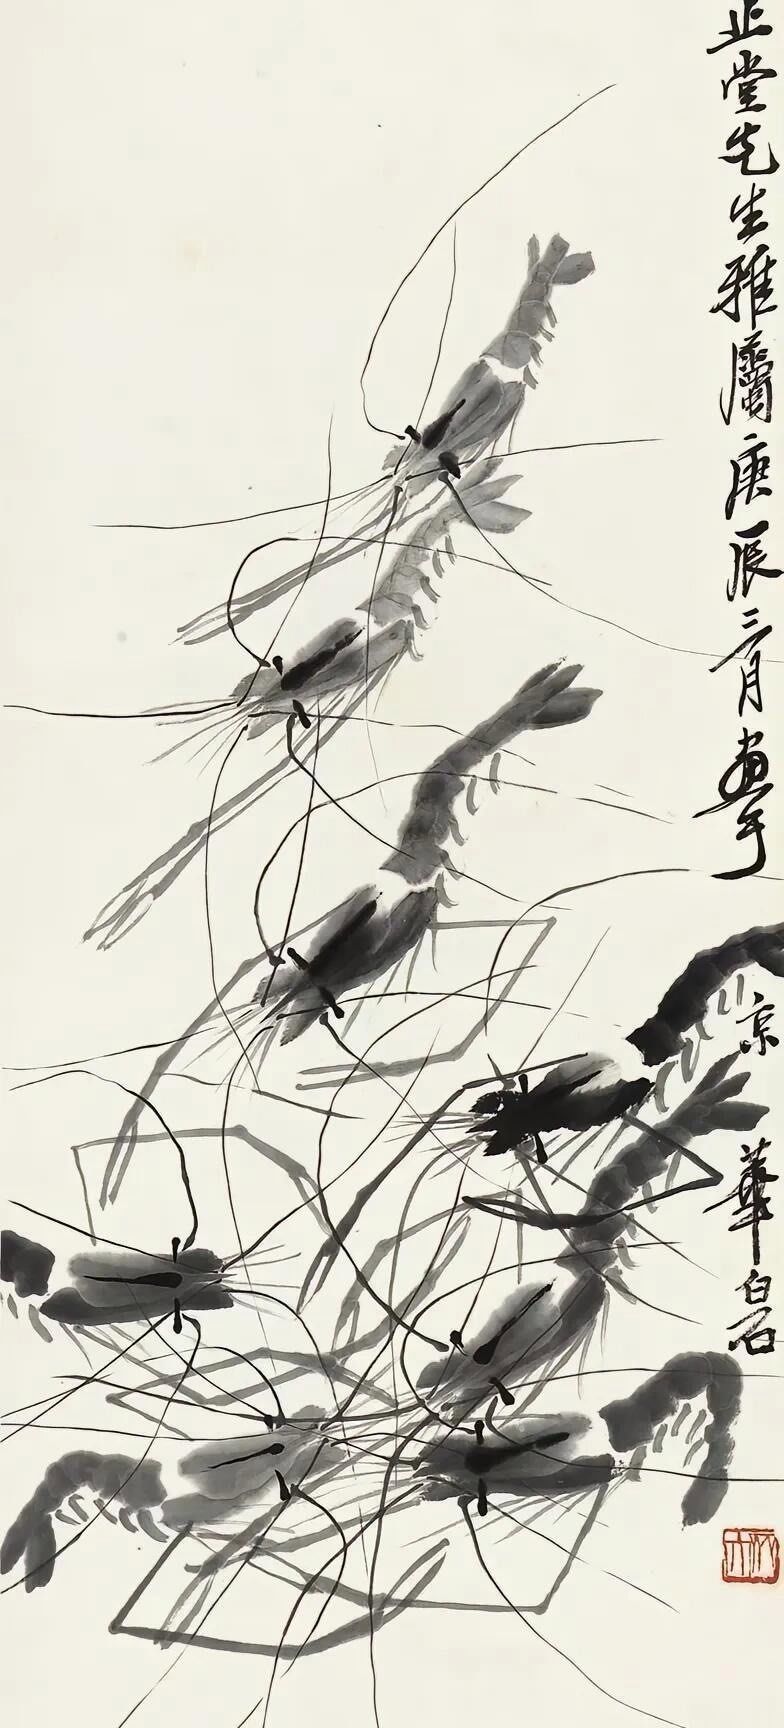 止堂先生雅屬庚辰三月畫于京華白石